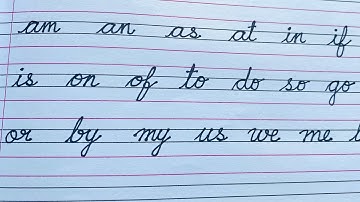 am an as at in if
is on of to do so go
or by my us we me